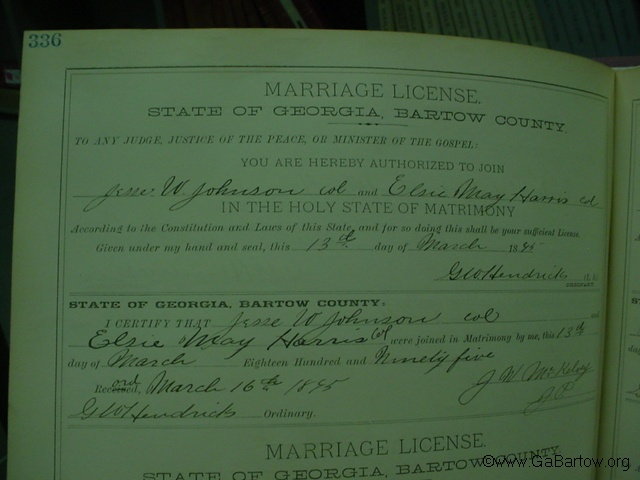 336
MARRIAGE LICENSE.
STATE OF GEORGIA, BARTOW COUNTY.
TO ANY JUDGE, JUSTICE OF THE PEACE, OR MINISTER OF THE GOSPEL:
YOU ARE HEREBY AUTHORIZED TO JOIN
Jesse W. Johnson col and Elsie May Harris col
IN THE HOLY STATE OF MATRIMONY
According to the Constitution and Laws of this State, and for so doing this shall be your sufficient License.
Given under my hand and seal, this 13th day of March 1895
G W Hendricks (L. S.)
ORDINARY.
STATE OF GEORGIA, BARTOW COUNTY:
I CERTIFY THAT Jesse W Johnson col and
Elsie May Harris col were joined in Matrimony by me, this 13th
day of March Eighteen Hundred and Ninety five
Recorded, March 16th 1895
J W McKelvey
J. P.
G W Hendricks Ordinary.
MARRIAGE LICENSE.
STATE OF GEORGIA, BARTOW COUNTY
©www.GaBartow.org